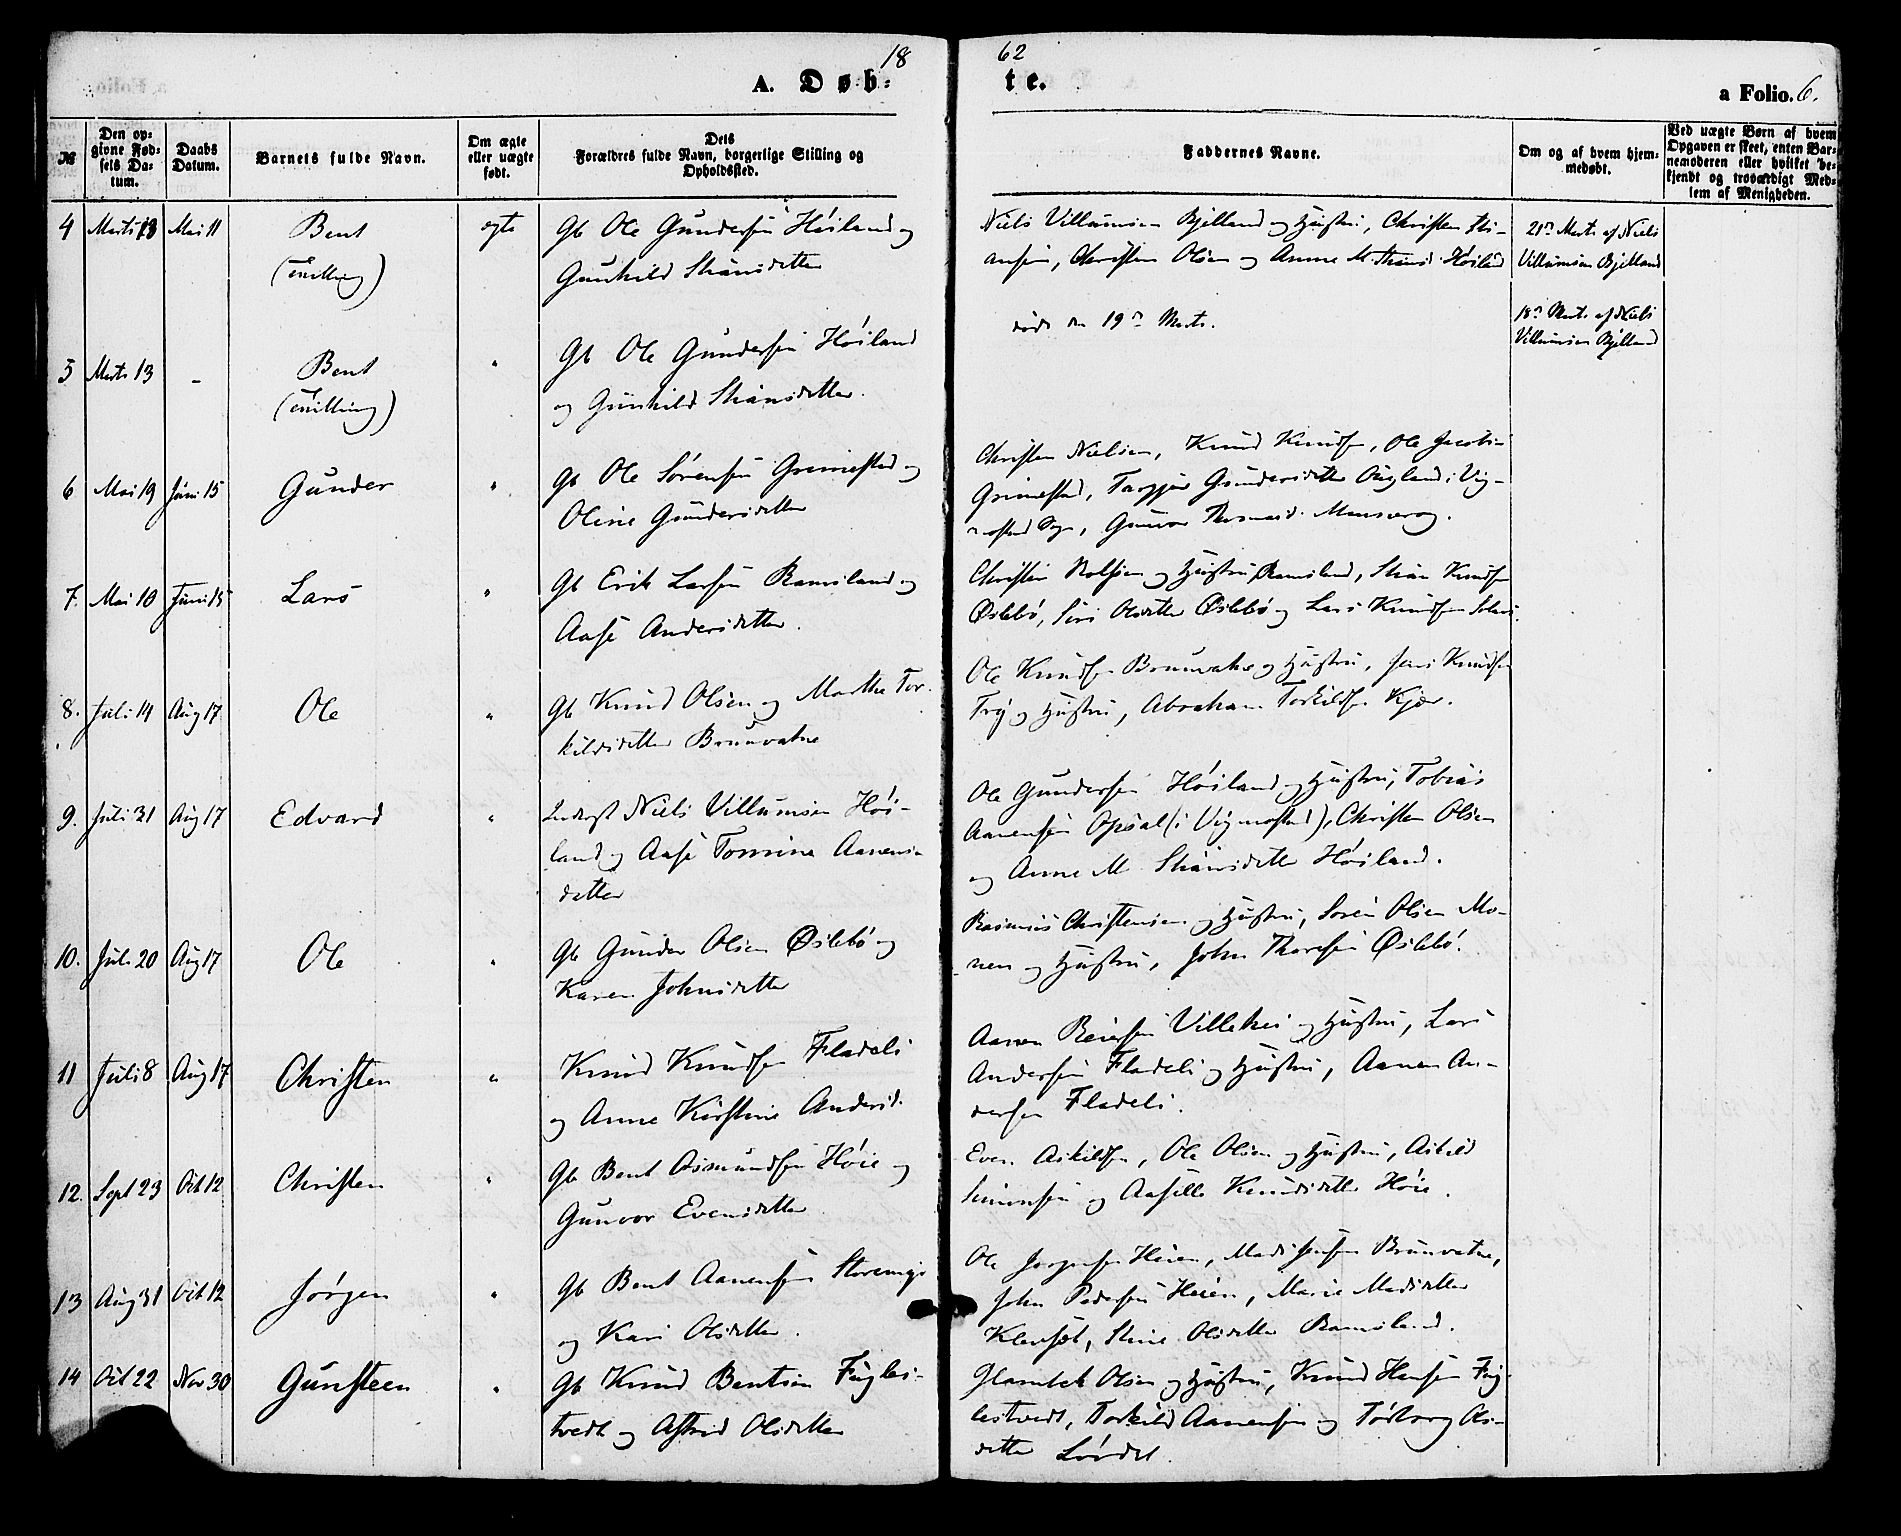 18 62
A. Døb- te. a Folio. 6.
№
Den op-
givne Fød-
sels Da-
tum.
Daabs
Datum.
Barnets fulde Navn.
Om ægte
eller uægte
født.
Dets
Forældres fulde Navn, borgerlige Stilling og
Opholdssted.
Faddernes Navne.
Om og af hvem hjem-
medøbt.
Ved uægte Børn af hvem
Opgaven er skeet, enten Bar-
nemoderen eller hvilket be-
kjendt og troværdigt Med-
lem af Menigheden.
4 Marts 13 Mai 11 Bent
(Tvilling)
ægte
Gb Ole Gundersen Høiland og
Gunhild Stiansdatter
Niels Villumsen Bjelland og Hustru, Christen Sti-
ansen, Christen Olsen og Anne M. Stiansd. Høiland
21de Marts af Niels
Villumsen Bjelland
5 Marts 13 - Bent
(Tvilling)
"
Gb Ole Gundersen Høiland
og Gunhild Stiansdatter.
døde den 19de Marts.
18de Marts af Niels
Villumsen Bjelland
6 Mai 19 Juni 15 Gunder "
Gb Ole Sørensen Grimestad og
Oline Gundersdatter
Christen Nielsen, Knud Knudsen, Ole Jacobs-
Grimestad, Targjer Gundersdatter Augland i Vig-
mostad Sogn, Gunvor
7. Mai 10 Juni 15 Lars "
Gb Erik Larsen Ramsland og
Aase Andersdatter.
Christen Rolfsen og Hustru Ramsland, Stian Knudsen
Øslebø, Siri Olsdatter Øslebø og Lars Knudsen
8. Juli 14 Aug 17 Ole "
Gb Knud Olsen og Marthe Tor-
kildsdatter Brunvatne
Ole Knudsen Brunvatne og Hustru, Jens Knudsen
Try og Hustru, Abraham Torkildsen Kjær.
9. Juli 31 Aug 17 Edvard "
Inderst Niels Villumsen Høi-
land og Aase Tomine Aanens-
datter
Ole Gundersen Høiland og Hustru, Tobias
Aanensen Opsal (i Vigmostad), Christen Olsen
og Anne M. Stiansdatter Høiland.
10. Juli 20 Aug 17 Ole "
Gb Gunder Olsen Øslebø og
Karen Johnsdatter
Rasmus Christensen og Hustru, Søren Olsen Mo-
nen og Hustru, John Thorsen Øslebø.
11 Juli 8 Aug 17 Christen "
Knud Knudsen Fladeli
og Anne Kirstine Andersd.
Aanen Reiersen Villekei og Hustru, Lars
Andersen Fladeli og Hustru, Aanen An-
dersen Fladeli.
12. Sept 23 Oct 12 Christen "
Gb Bent Asmundsen Høie og
Gunvor Evensdatter
Even Askildsen, Ole Olsen og Hustru, Askild
Simonsen og Aasille Knudsdatter Høie.
13 Aug 31 Oct 12 Jørgen "
Gb Bent Aanensen Storemyr
og Kari Olsdatter.
Ole Jørgensen Heien, Mads Jensen Brunvatne,
John Pedersen Heien, Marie Madsdatter
Klevset, Stine Olsdatter Ramsland.
14 Oct 22 Nov 30 Gunsteen "
Gb Knud Bentsen Fugles-
tvedt og Astrid Olsdatter
Glambek Olsen og Hustru, Knud Hansen Fug-
lestvedt, Torkild Aanensen og Torborg Ols-
datter Løvdal.